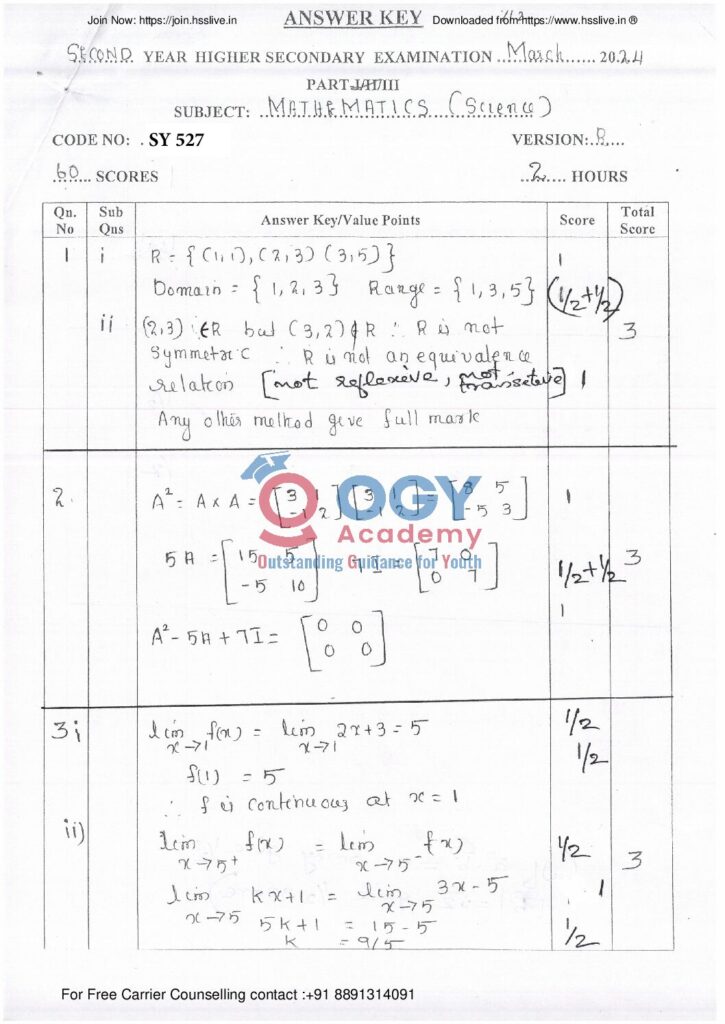 Join Now: https://join.hsslive.in
ANSWER KEY
Downloaded from https://www.hsslive.in ®
SECOND YEAR HIGHER SECONDARY EXAMINATION ..March...... 2024
PART I/II/III
SUBJECT: ..MATHEMATICS (Science)
CODE NO: . SY 527
VERSION:..B....
..60.... SCORES
..2..... HOURS
Qn. No
Sub Qns
Answer Key/Value Points
Score
Total Score
1 i R = {(1,1), (2,3) (3,5)} 1
Domain = {1, 2, 3} Range = {1, 3, 5} (1/2+1/2)
ii (2,3) ∈R but (3,2)∉R ∴ R is not 3
Symmetric ∴ R is not an equivalence
relation [not reflexive, not transitive] 1
Any other method give full mark
2. A² = A × A = [3 1 -1 2] [3 1 -1 2] = [8 5 -5 3] 1
OGY
Academy
Outstanding Guidance for Youth
5A = [15 5 -5 10] 7I = [7 0 0 7] 1/2+1/2 3
A² - 5A + 7I = [0 0 0 0] 1
3 i lim x→1 f(x) = lim x→1 2x+3 = 5 1/2
f(1) = 5 1/2
∴ f is continuous at x = 1
ii) lim x→5+ f(x) = lim x→5- f(x) 1/2 3
lim x→5 kx+1 = lim x→5 3x-5 1
5k+1 = 15-5
k = 9/5 1/2
For Free Carrier Counselling contact :+91 8891314091